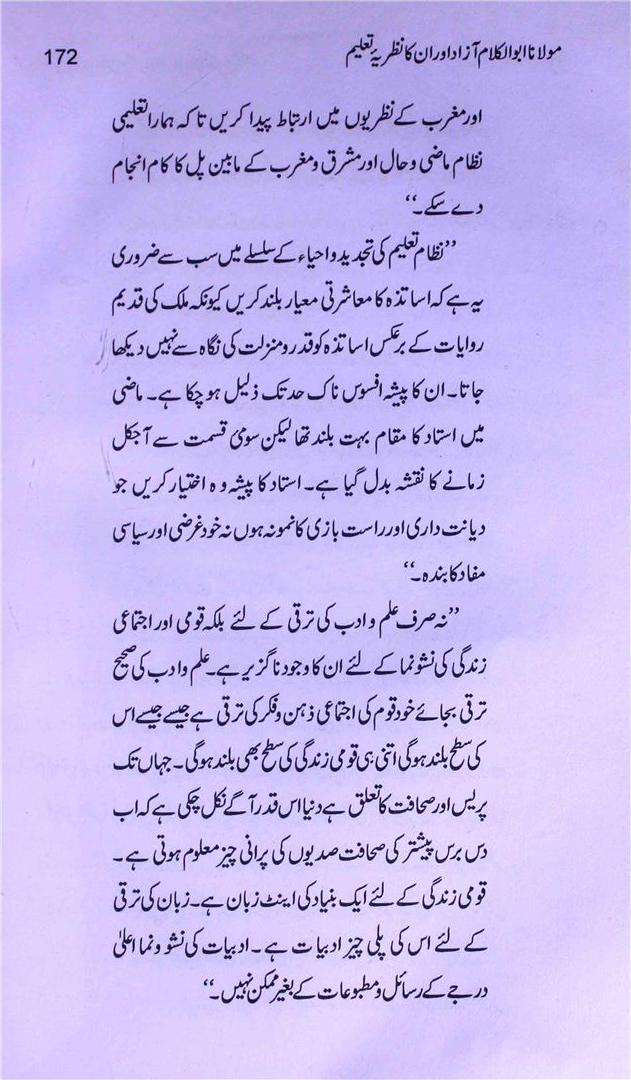 مولانا ابوالکلام آزاد اور ان کا نظریۂ تعلیم 172
اور مغرب کے نظریوں میں ارتباط پیدا کریں تاکہ ہمارا تعلیمی
نظام ماضی و حال اور مشرق و مغرب کے مابین پل کا کام انجام
دے سکے۔‘‘
’’نظام تعلیم کی تجدید و احیاء کے سلسلے میں سب سے ضروری
یہ ہے کہ اساتذہ کا معاشرتی معیار بلند کریں کیونکہ ملک کی قدیم
روایات کے برعکس اساتذہ کو قدر و منزلت کی نگاہ سے نہیں دیکھا
جاتا۔ ان کا پیشہ افسوس ناک حد تک ذلیل ہو چکا ہے۔ ماضی
میں استاد کا مقام بہت بلند تھا لیکن سومیٔ قسمت سے آجکل
زمانے کا نقشہ بدل گیا ہے۔ استاد کا پیشہ وہ اختیار کریں جو
دیانت داری اور راست بازی کا نمونہ ہوں نہ خود غرضی اور سیاسی
مفاد کا بندہ۔‘‘
’’نہ صرف علم و ادب کی ترقی کے لئے بلکہ قومی اور اجتماعی
زندگی کی نشو نما کے لئے ان کا وجود ناگزیر ہے۔ علم و ادب کی صحیح
ترقی بجائے خود قوم کی اجتماعی ذہن و فکر کی ترقی ہے جیسے جیسے اس
کی سطح بلند ہوگی اتنی ہی قومی زندگی کی سطح بھی بلند ہوگی۔ جہاں تک
پریس اور صحافت کا تعلق ہے دنیا اس قدر آگے نکل چکی ہے کہ اب
دس برس پیشتر کی صحافت صدیوں کی پرانی چیز معلوم ہوتی ہے۔
قومی زندگی کے لئے ایک بنیاد کی اینٹ زبان ہے۔ زبان کی ترقی
کے لئے اس کی پلی چیز ادبیات ہے۔ ادبیات کی نشو ونما اعلیٰ
درجے کے رسائل و مطبوعات کے بغیر ممکن نہیں۔‘‘